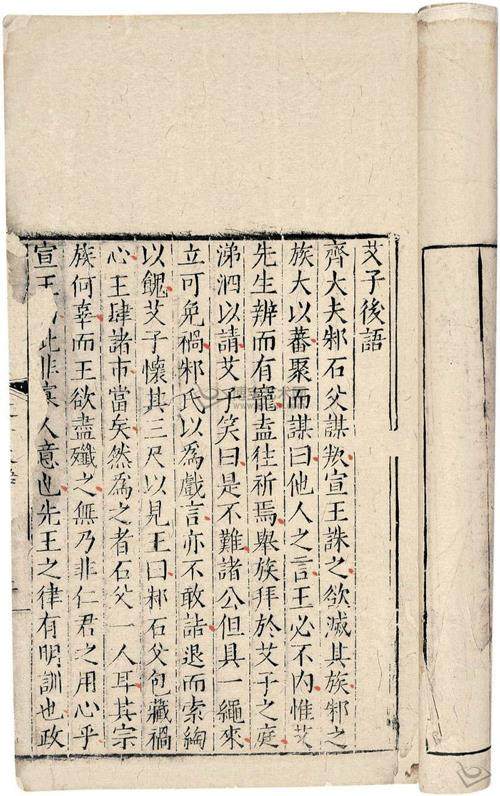 艾子後語
齊大夫邾石父謀叛宣王誅之欲滅其族邾之
族大以蕃聚而謀曰他人之言王必不内惟艾
先生辨而有寵盍往祈焉舉族拜於艾子之庭
涕泗以請艾子笑曰是不難諸公但具一繩來
立可免禍邾氏以爲戲言亦不敢詰退而索綯
以餽艾子懷其三尺以見王曰邾石父包藏禍
心王肆諸市當矣然爲之者石父一人耳其宗
族何辜而王欲盡殲之無乃非仁君之用心乎
宣王此非寡人意也先王之律有明訓也政